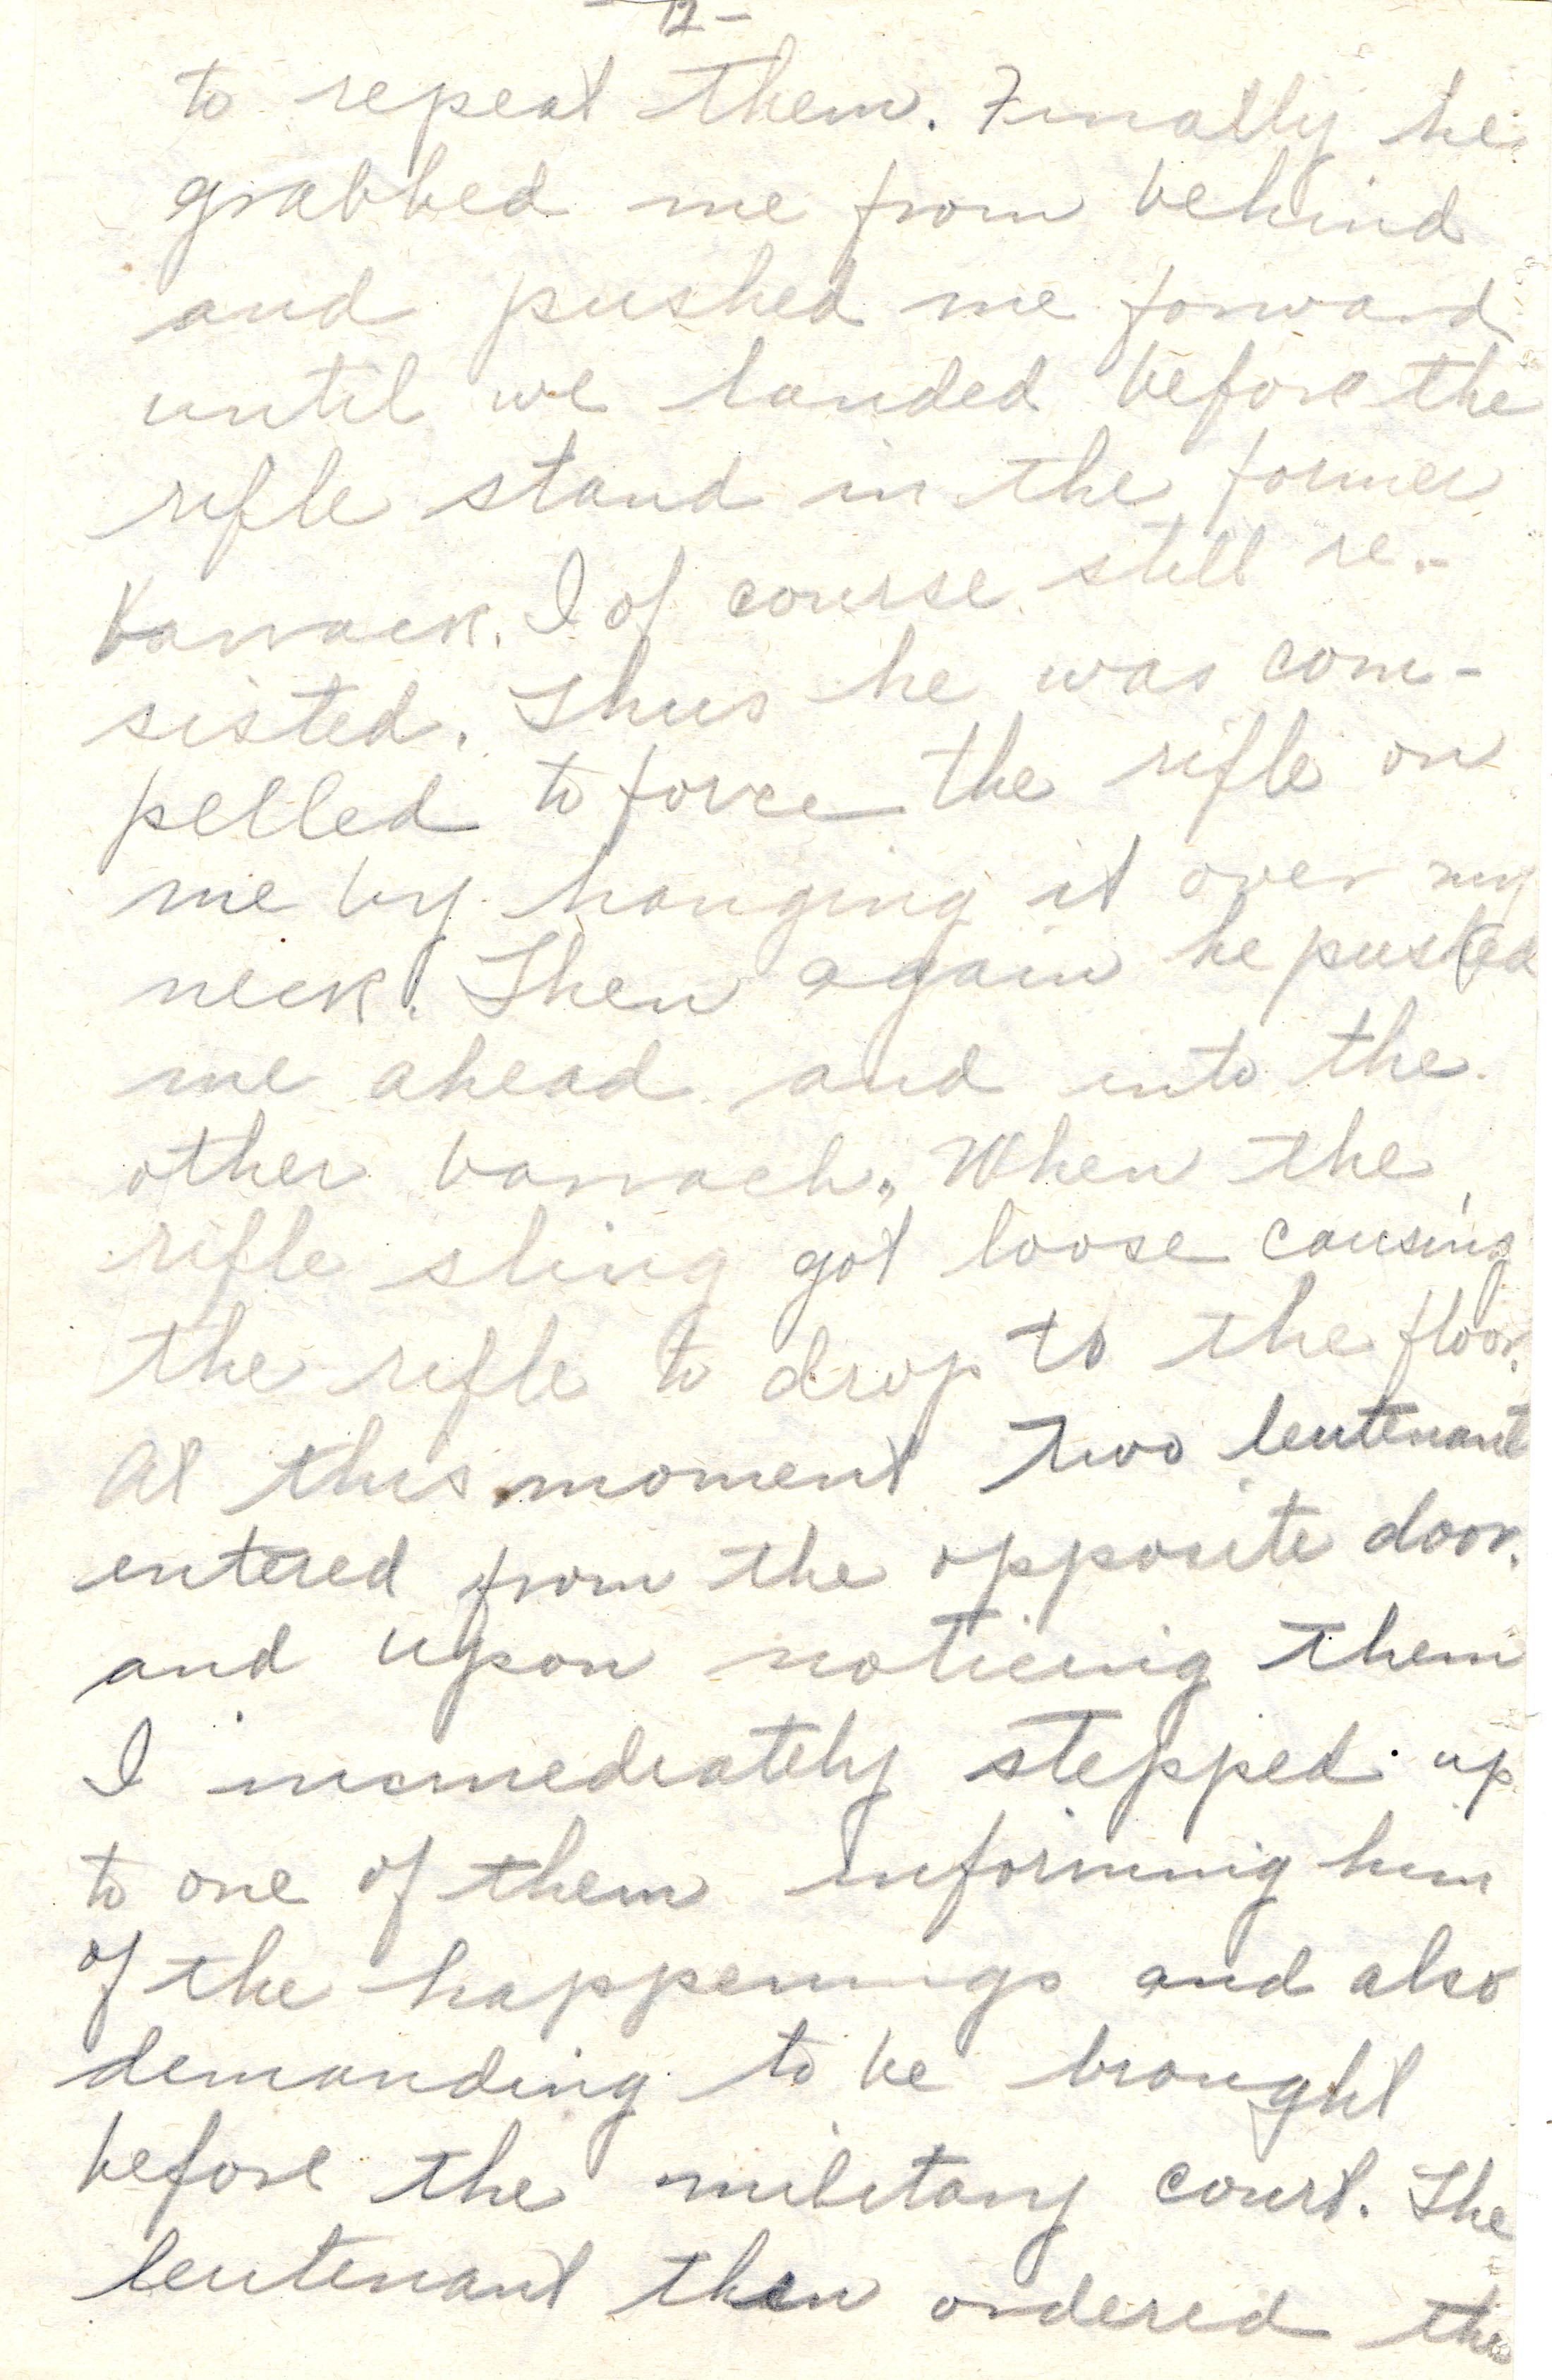 - 12 -
to repeat them. Finally he
grabbed me from behind
and pushed me forward
until we landed before the
rifle stand in the former
barrack. I of course still re-
sisted. Thus he was com-
pelled to force the rifle on
me by hanging it over my
neck. Then again he pushed
me ahead and into the
other barrach. When the
rifle sling got loose causing
the rifle to drop to the floor.
At this moment two leutenant
entered from the opposite door.
and upon noticing them
I immediately stepped up
to one of them informing him
of the happenings and also
demanding to be brought
before the military court. The
leutenant then ordered the